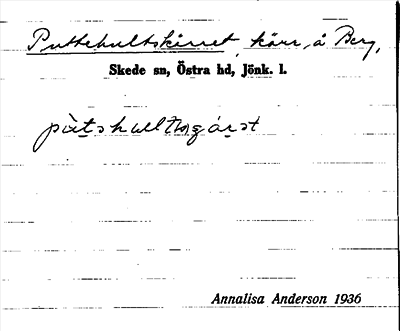 Puttehultskärret, kärr, å Berg,
Skede sn, Östra hd, Jönk. l.
Annalisa Anderson 1936